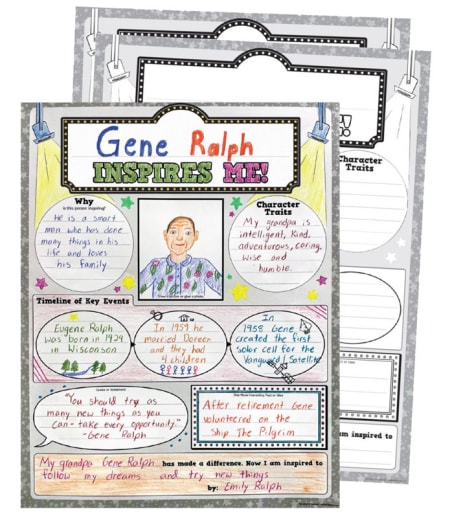 Gene Ralph
INSPIRES ME!
Why
is this person inspiring?
He is a smart
man who has done
many things in his
life and loves
his family.
Character
Traits
My grandpa is
intelligent, kind,
adventurous, caring,
wise and
humble.
Timeline of Key Events
Eugene Ralph
was born in 1929
in Wisconson
In 1959 he
married Doreen
and they had
4 children
In
1958 Gene
created the first
solar cell for the
Vanguard 1 Satellite
Quote or Statement
"You should try as
many new things as you
can - take every opportunity."
- Gene Ralph
After retirement Gene
volunteered on the
ship The Pilgrim
My grandpa Gene Ralph has made a difference. Now I am inspired to
follow my dreams and try new things
by: Emily Ralph
Character
Traits
am inspired to